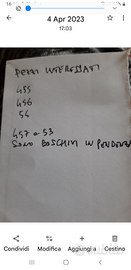 4 Apr 2023
17:03
PEZZI INTERESSATI
455
456
54
457 e 53
SONO BOSCHIVI IN PENDENZA
Condividi
Modifica
Aggiungi a
Cestino